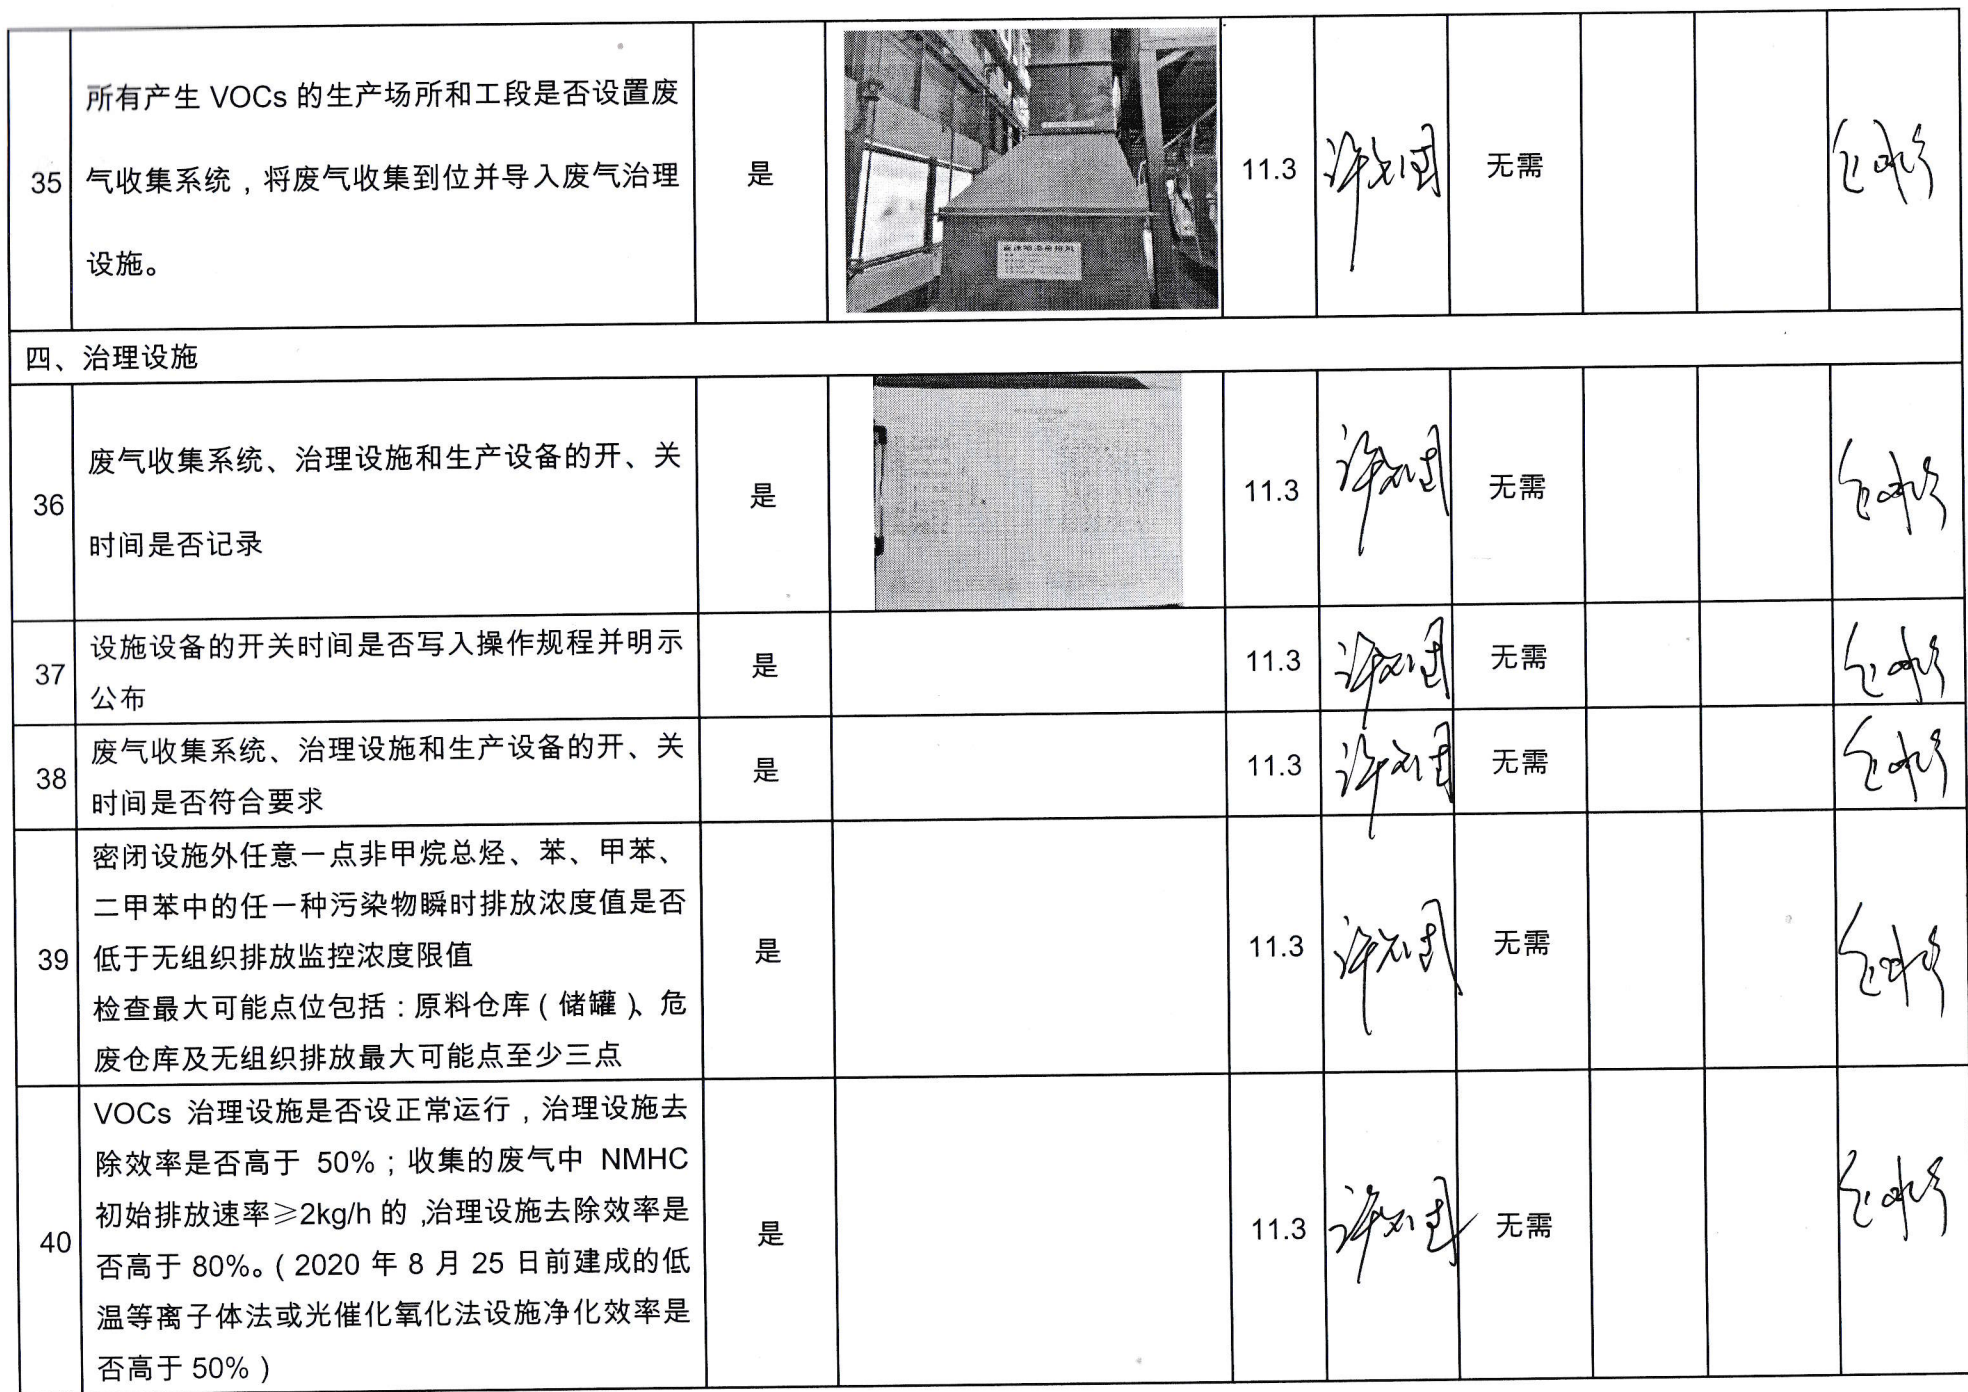 35
所有产生 VOCs 的生产场所和工段是否设置废
气收集系统，将废气收集到位并导入废气治理
设施。
是
11.3
无需
四、治理设施
36
废气收集系统、治理设施和生产设备的开、关
时间是否记录
是
11.3
无需
37
设施设备的开关时间是否写入操作规程并明示
公布
是
11.3
无需
38
废气收集系统、治理设施和生产设备的开、关
时间是否符合要求
是
11.3
无需
39
密闭设施外任意一点非甲烷总烃、苯、甲苯、
二甲苯中的任一种污染物瞬时排放浓度值是否
低于无组织排放监控浓度限值
检查最大可能点位包括：原料仓库（储罐）、危
废仓库及无组织排放最大可能点至少三点
是
11.3
无需
40
VOCs 治理设施是否设正常运行，治理设施去
除效率是否高于 50%；收集的废气中 NMHC
初始排放速率≥2kg/h 的，治理设施去除效率是
否高于 80%。（2020 年 8 月 25 日前建成的低
温等离子体法或光催化氧化法设施净化效率是
否高于 50%）
是
11.3
无需